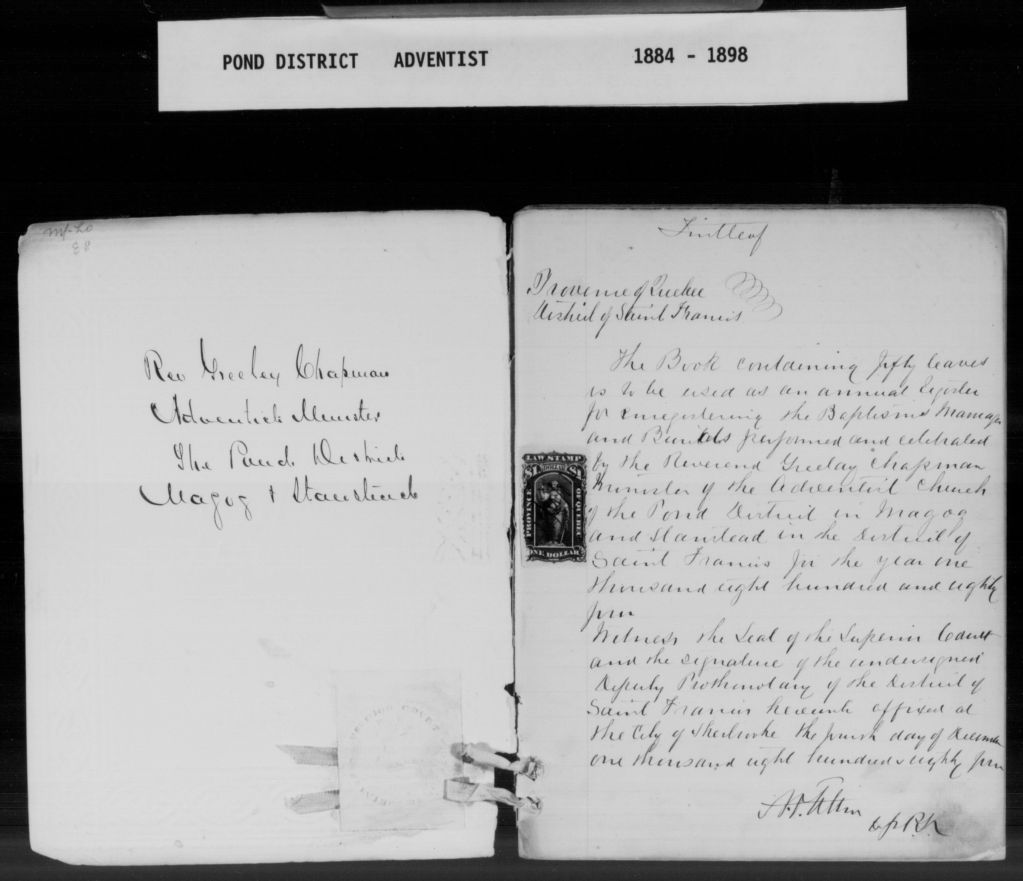 POND DISTRICT ADVENTIST 1884 - 1898
Rev Greeley Chapman
Adventist Minister
The Pond District
Magog & Stanstead
First leaf
Province of Quebec
District of Saint Francis
The Book containing fifty leaves
is to be used as an annual Register
for enregistering the Baptisms Marriages
and Burials performed and celebrated
by the Reverend Greeley Chapman
Minister of the Adventist Church
of the Pond District in Magog
and Stanstead in the District of
Saint Francis for the year one
thousand eight hundred and eighty
four
Witness the Seal of the Superior Court
and the signature of the undersigned
Deputy Prothonotary of the District of
Saint Francis hereunto affixed at
the City of Sherbrooke the day of December
one thousand eight hundred & eighty four
LAW STAMP
$1 DOLLAR $1
PROVINCE OF QUEBEC
ONE DOLLAR